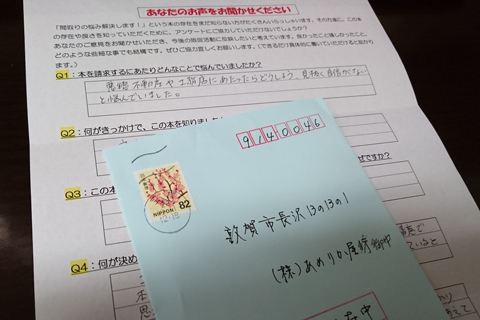 あなたのお声をお聞かせください
「間取りの悩み解決します！」という本の存在をまだ知らない方がたくさんいらっしゃいます。その方達に、この本
の存在や良さを知っていただくために、アンケートにご協力していただけないでしょうか？
あなたのご意見をお聞かせいただき、今後の販促活動に反映したいと考えています。良かったこと嬉しかったこと、
どのような些細な事でも結構です。ぜひご協力宜しくお願いします。（できるだけ具体的に書いていただけると助かり
ます。）
Q1：本を請求するにあたりどんなことで悩んでいましたか？
悪徳不動産や工務店にあたったらどうしよう、見極く自信がない
と悩んでいました。
Q2：何がきっかけで、この本を知りました
Q3：この本
ぜですか？
Q4：何が決め
9140046
NIPPON
82
敦賀市長沢13の13の1
(株)あめりか屋 御中
在中